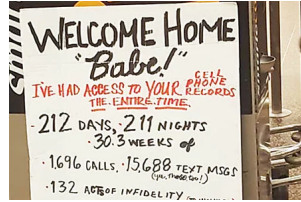 WELCOME HOME
"Babe!"
I'VE HAD ACCESS TO YOUR CELL PHONE RECORDS
THE ENTIRE TIME.
·212 DAYS, ·211 NIGHTS
·30.3 WEEKS of
·1,696 CALLS, ·15,688 TEXT MSGS
(yes, those too!)
·132 ACTS OF INFIDELITY